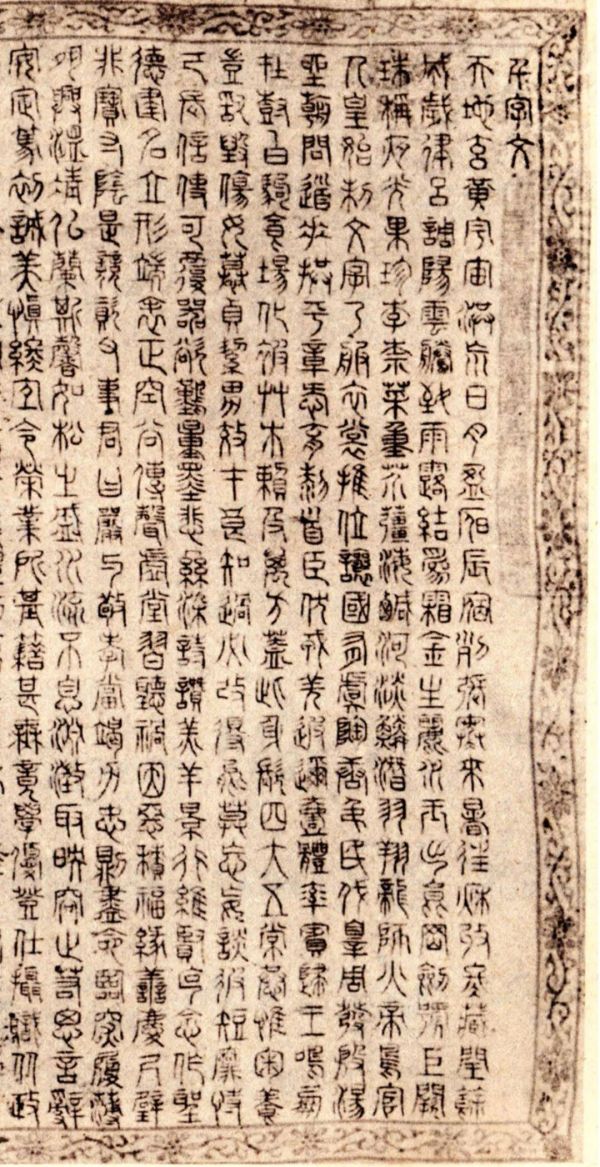 千字文
天地玄黃宇宙洪荒日月盈昃辰宿列張寒來暑往秋收冬藏閏餘
成歲律呂調陽雲騰致雨露結為霜金生麗水玉出崑岡劍號巨闕
珠稱夜光果珍李柰菜重芥薑海鹹河淡鱗潛羽翔龍師火帝鳥官
人皇始制文字乃服衣裳推位讓國有虞陶唐弔民伐罪周發殷湯
坐朝問道垂拱平章愛育黎首臣伏戎羌遐邇壹體率賓歸王鳴鳳
在樹白駒食場化被草木賴及萬方蓋此身髮四大五常恭惟鞠養
豈敢毀傷女慕貞絜男效才良知過必改得能莫忘罔談彼短靡恃
己長信使可覆器欲難量墨悲絲染詩讚羔羊景行維賢克念作聖
德建名立形端表正空谷傳聲虛堂習聽禍因惡積福緣善慶尺璧
非寶寸陰是競資父事君曰嚴與敬孝當竭力忠則盡命臨深履薄
夙興溫凊似蘭斯馨如松之盛川流不息淵澄取映容止若思言辭
安定篤初誠美慎終宜令榮業所基籍甚無竟學優登仕攝職從政